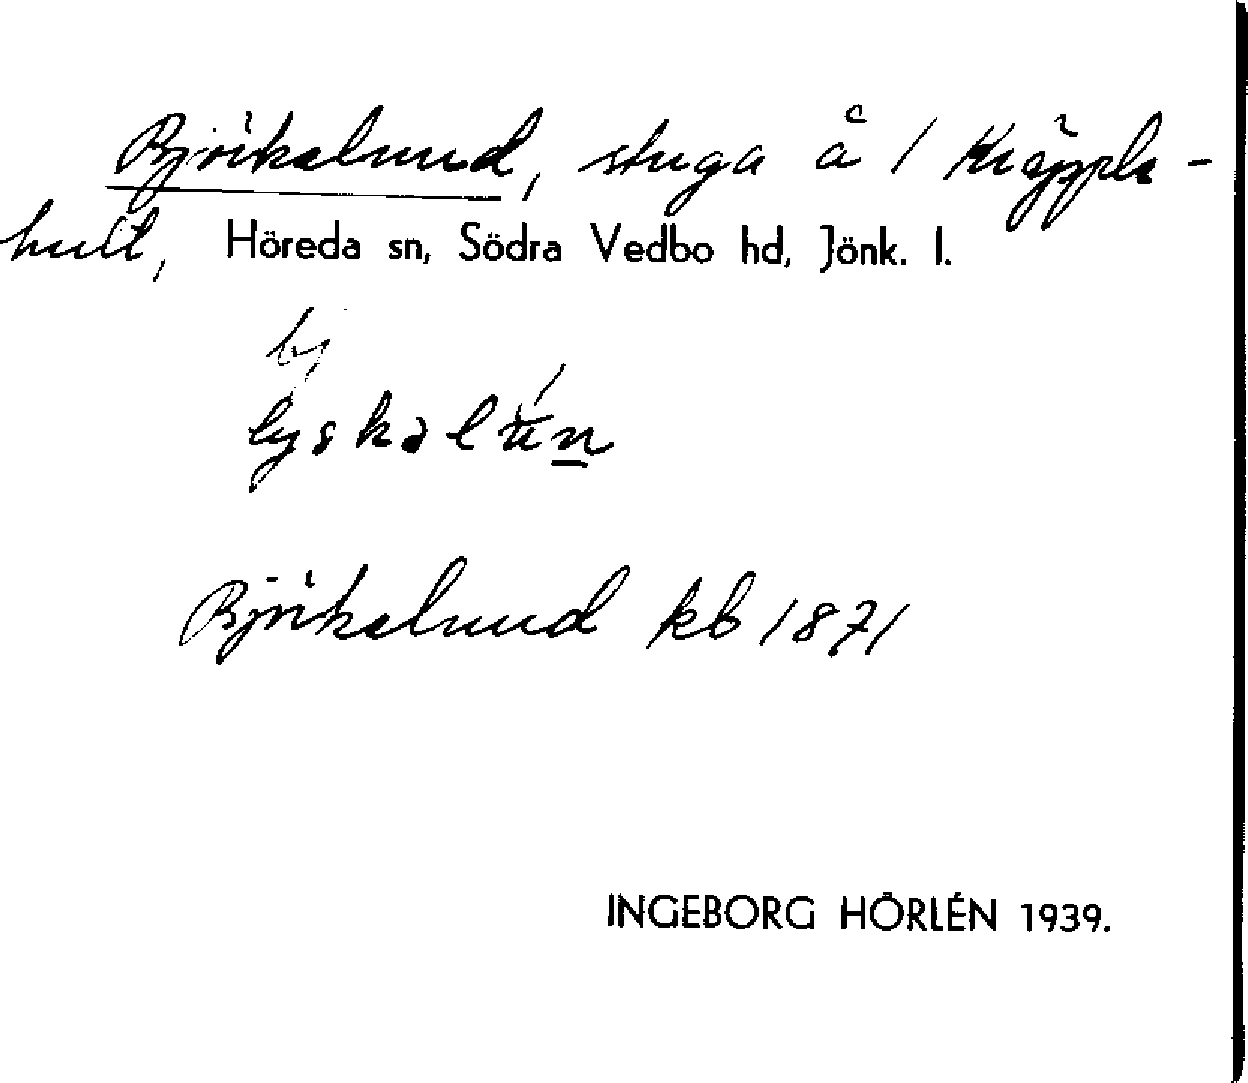 Björkelund, stuga å 1 Kräppla-
hult, Höreda sn, Södra Vedbo hd, Jönk. l.
bj
Björkelund kb 1871
INGEBORG HÖRLÉN 1939.